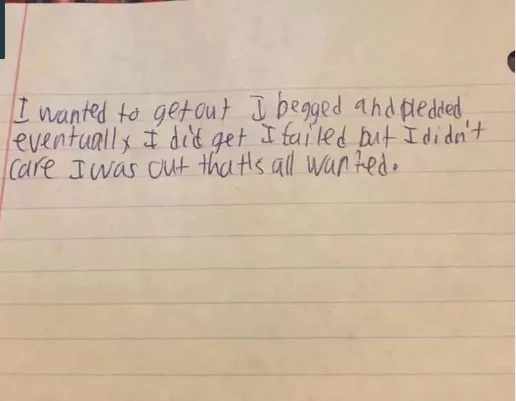 I wanted to get out I begged and pledded
eventually I did get I failed but I didn't
care I was out that's all wanted.